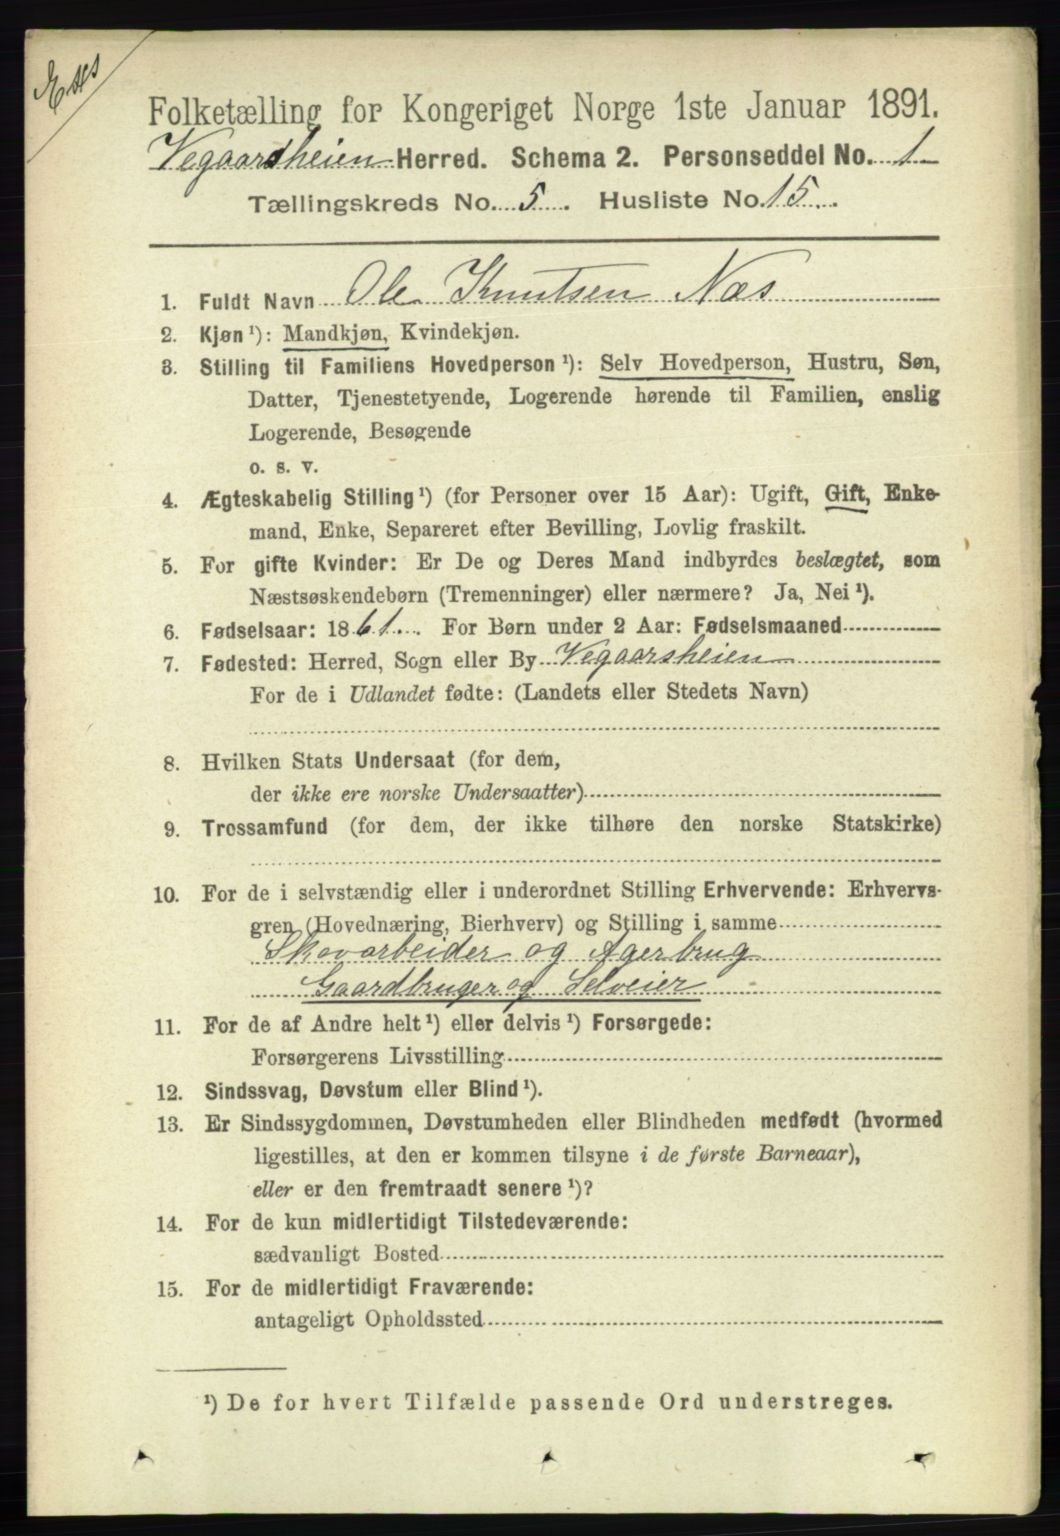 Folketælling for Kongeriget Norge 1ste Januar 1891.
Vegaarsheien Herred. Schema 2. Personseddel No. 1
Tællingskreds No. 5. Husliste No. 15.
1. Fuldt Navn Ole Knutsen Næs
2. Kjøn ¹): Mandkjøn, Kvindekjøn.
3. Stilling til Familiens Hovedperson ¹): Selv Hovedperson, Hustru, Søn,
Datter, Tjenestetyende, Logerende hørende til Familien, enslig
Logerende, Besøgende
o. s. v.
4. Ægteskabelig Stilling ¹) (for Personer over 15 Aar): Ugift, Gift, Enke-
mand, Enke, Separeret efter Bevilling, Lovlig fraskilt.
5. For gifte Kvinder: Er De og Deres Mand indbyrdes beslægtet, som
Næstsøskendebørn (Tremenninger) eller nærmere? Ja, Nei ¹).
6. Fødselsaar: 1861. For Børn under 2 Aar: Fødselsmaaned
7. Fødested: Herred, Sogn eller By Vegaarsheien
For de i Udlandet fødte: (Landets eller Stedets Navn)
8. Hvilken Stats Undersaat (for dem,
der ikke ere norske Undersaatter)
9. Trossamfund (for dem, der ikke tilhøre den norske Statskirke)
10. For de i selvstændig eller i underordnet Stilling Erhvervende: Erhvervs-
gren (Hovednæring, Bierhverv) og Stilling i samme
Skovarbeider og Agerbrug
Gaardbruger og Selveier
11. For de af Andre helt ¹) eller delvis ¹) Forsørgede:
Forsørgerens Livsstilling
12. Sindssvag, Døvstum eller Blind ¹).
13. Er Sindssygdommen, Døvstumheden eller Blindheden medfødt (hvormed
ligestilles, at den er kommen tilsyne i de første Barneaar),
eller er den fremtraadt senere ¹)?
14. For de kun midlertidigt Tilstedeværende:
sædvanligt Bosted
15. For de midlertidigt Fraværende:
antageligt Opholdssted
¹) De for hvert Tilfælde passende Ord understreges.